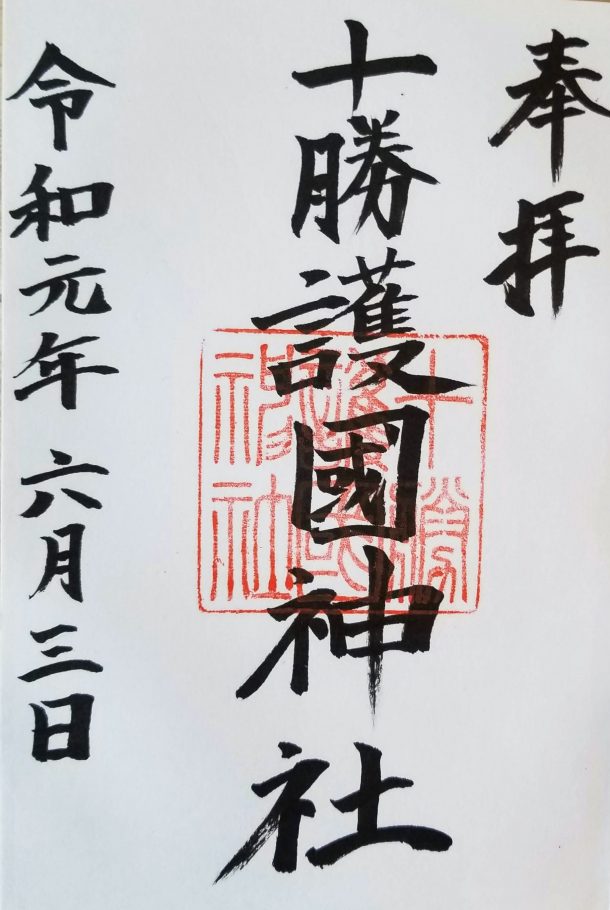 奉拝
十勝護國神社
十勝護國神社
令和元年 六月三日